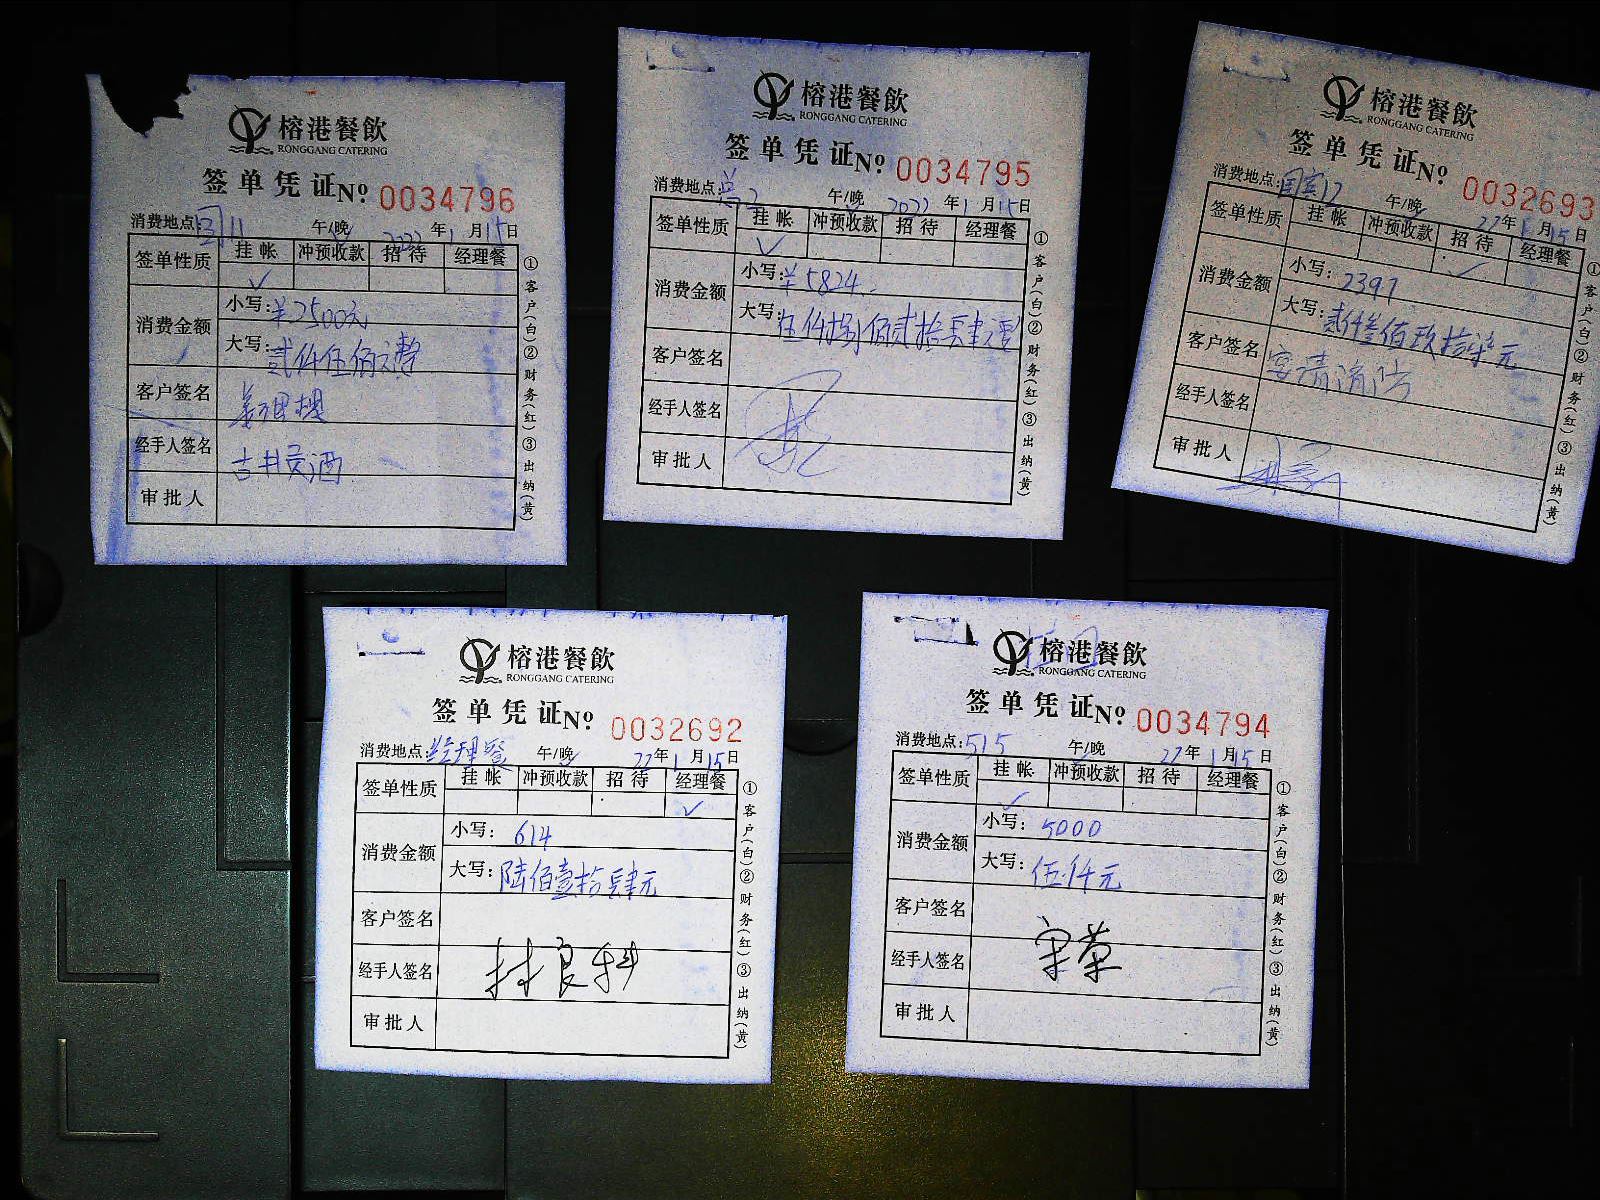 榕港餐飲
RONGGANG CATERING
签单凭证 № 0034796
消费地点: 午/晚 2022年1月15日
签单性质 挂帐 冲预收款 招待 经理餐
✓
消费金额 小写: ¥2500元
大写: 贰仟伍佰元整
客户签名
经手人签名 古井贡酒
审批人
①客户(白)②财务(红)③出纳(黄)
榕港餐飲
RONGGANG CATERING
签单凭证 № 0034795
消费地点: 午/晚 2022年1月15日
签单性质 挂帐 冲预收款 招待 经理餐
✓
消费金额 小写: ¥5824.
大写: 伍仟捌佰贰拾肆元整
客户签名
经手人签名
审批人
①客户(白)②财务(红)③出纳(黄)
榕港餐飲
RONGGANG CATERING
签单凭证 № 0032693
消费地点: 12 午/晚 22年1月15日
签单性质 挂帐 冲预收款 招待 经理餐
✓
消费金额 小写: 2397
大写: 贰仟叁佰玖拾柒元
客户签名 宴请消防
经手人签名
审批人
①客户(白)②财务(红)③出纳(黄)
榕港餐飲
RONGGANG CATERING
签单凭证 № 0032692
消费地点: 经理餐 午/晚 22年1月15日
签单性质 挂帐 冲预收款 招待 经理餐
✓
消费金额 小写: 614
大写: 陆佰壹拾肆元
客户签名
经手人签名 林良科
审批人
①客户(白)②财务(红)③出纳(黄)
榕港餐飲
RONGGANG CATERING
签单凭证 № 0034794
消费地点: 515 午/晚 22年1月15日
签单性质 挂帐 冲预收款 招待 经理餐
✓
消费金额 小写: 5000
大写: 伍仟元
客户签名
经手人签名 宋草
审批人
①客户(白)②财务(红)③出纳(黄)